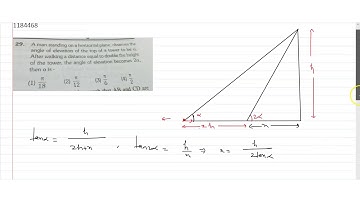 1184468
29. A man standing on a horizontal plane, observes the
angle of elevation of the top of a tower to be α.
After walking a distance equal to double the height
of the tower, the angle of elevation becomes 2α,
then α is
(1) π/18 (2) π/12 (3) π/6 (4) π/2
h
α
2α
2h
x
tanα = h/2h+x , tan2α = h/x ⇒ x = h/2tanα